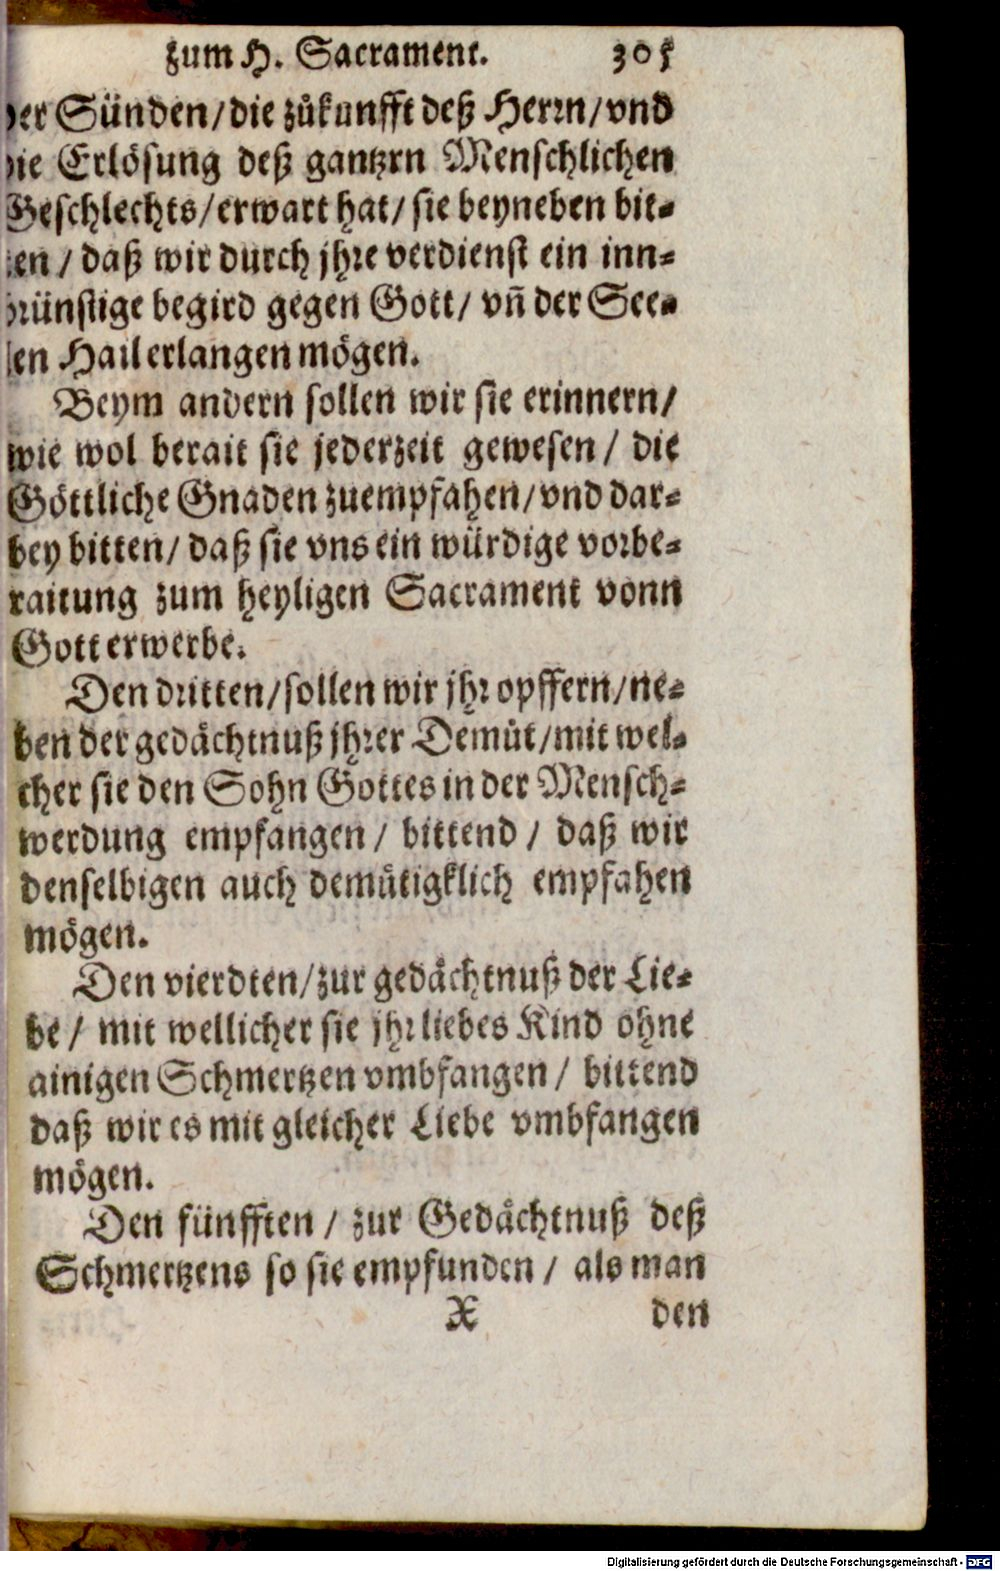 zum H. Sacrament. 305
der Sünden/die zůkunfft deß Herrn/vnd
die Erlösung deß gantzrn Menschlichen
Geschlechts/erwart hat/sie beyneben bit-
ten/daß wir durch jhre verdienst ein inn-
brünstige begird gegen Gott/vñ der See-
len Hail erlangen mögen.
Beym andern sollen wir sie erinnern/
wie wol berait sie jederzeit gewesen/die
Göttliche Gnaden zuempfahen/vnd dar-
bey bitten/daß sie vns ein würdige vorbe-
raitung zum heyligen Sacrament vonn
Gott erwerbe.
Den dritten/sollen wir jhr opffern/ne-
ben der gedåchtnuß jhrer Demůt/mit wel-
cher sie den Sohn Gottes in der Mensch-
werdung empfangen/bittend/daß wir
denselbigen auch demůtigklich empfahen
mögen.
Den vierdten/zur gedåchtnuß der Lie-
be/mit wellicher sie jhr liebes Kind ohne
ainigen Schmertzen vmbfangen/bittend
daß wir es mit gleicher Liebe vmbfangen
mögen.
Den fünfften/zur Gedåchtnuß deß
Schmertzens so sie empfunden/als man
X den
Digitalisierung gefördert durch die Deutsche Forschungsgemeinschaft - DFG